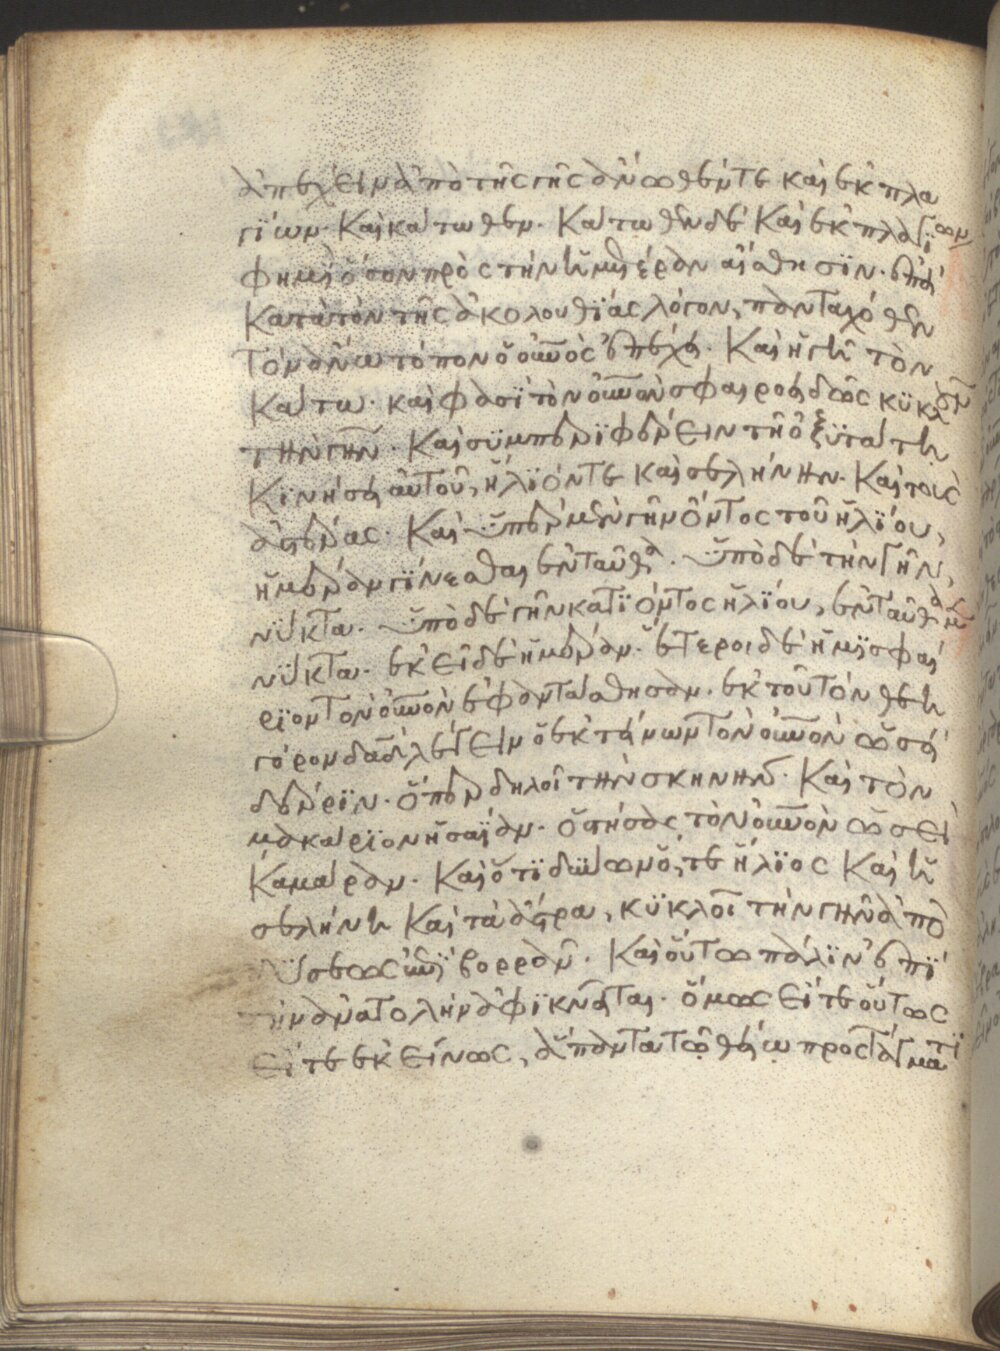 ἀπέχειν ἀπὸ τῆς γῆς ἄνωθέν τε καὶ ἐκ πλα
γίων· καὶ κάτωθεν· κάτωθεν δὲ καὶ ἐκ πλαγίων
φημὶ ὅσον πρὸς τὴν ἡμετέραν αἴσθησϊν· ἐπεὶ
κατὰ τὸν τῆς ἀκολουθΐας λόγον, πανταχόθεν
τὸν ἄνω τόπον ὁ οὐνὸς ἐπέχει· καὶ ἡ γῆ τὸν
κάτω· καὶ φασὶ τὸν οὐνὸν σφαιροειδῶς κυκλοῦν
τὴν γῆν· καὶ συμπεριφέρειν τῆ ὀξϋτάτη
κϊνήσει αὐτοῦ, ἥλϊόν τε καὶ σελήνην· καὶ τοὺς
ἀστέρας· καὶ ὑπὲρ μὲν γῆν ὄντος τοῦ ἡλΐου,
ἡμέραν γΐνεσθαι ἐνταῦθα· ὑπὸ δὲ τὴν γῆν,
νύκτα· ὑπὸ δὲ γῆν κατϊόντος ἡλΐου, ἐνταῦθα μὲν
νύκτα· ἐκεῖ δὲ ἡμέραν· ἕτεροι δὲ ἡμισφαί
ρϊον τὸν οὐνὸν ἐφαντάσθησαν· ἐκ τοῦ τὸν θεη
γόρον δαδ λέγειν ὁ ἐκτείνων τὸν οὐνὸν ὡσεὶ
δέρριν· ὅπερ δηλοῖ τὴν σκηνήν· καὶ τὸν
μακάρϊον ἡσαΐαν· ὁ στήσας τὸν οὐνὸν ὡσεὶ
καμάραν· καὶ ὅτϊ δύνων ὅ, τε ἥλϊος καὶ ἡ
σελήνη καὶ τὰ ἄστρα, κϋκλοῖ τὴν γῆν ἀπὸ
δύσεως ἐπὶ βορρᾶν· καὶ οὕτω πάλιν ἐπΐ
τὴν ἀνατολὴν ἀφϊκνεῖται· ὅμως εἴτε οὕτως
εἴτε ἐκείνως, ἅπαντα τῷ θείῳ προστάγματϊ